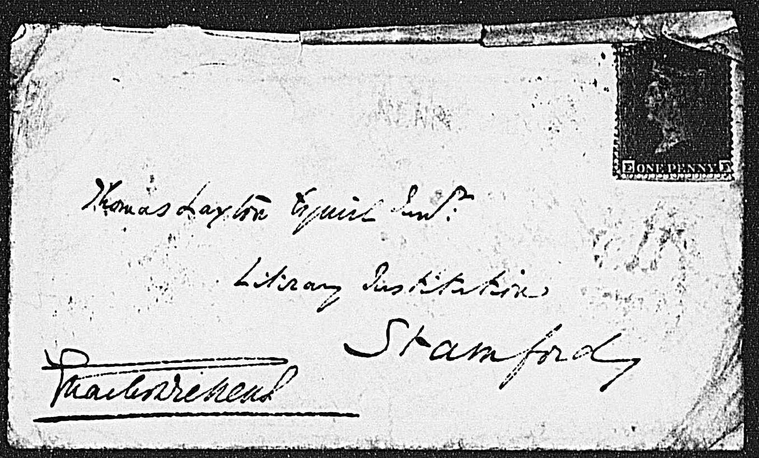 E ONE PENNY E
Thomas Laxton Esquire Junr.
Literary Institution
Stamford
Charles Dickens